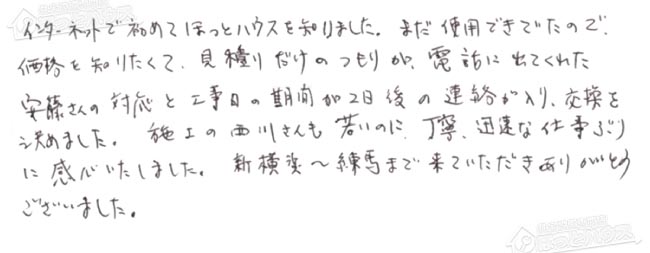 インターネットで初めてほっとハウスを知りました。まだ使用できていたので、
価格を知りたくて、見積りだけのつもりが、電話に出てくれた
安藤さんの対応と工事日の期間が2日後の連絡が入り、交換を
決めました。施工の西川さんも若いのに、丁寧、迅速な仕事ぶり
に感心いたしました。新横浜〜練馬まで来ていただきありがとう
ございました。
ほっとハウス